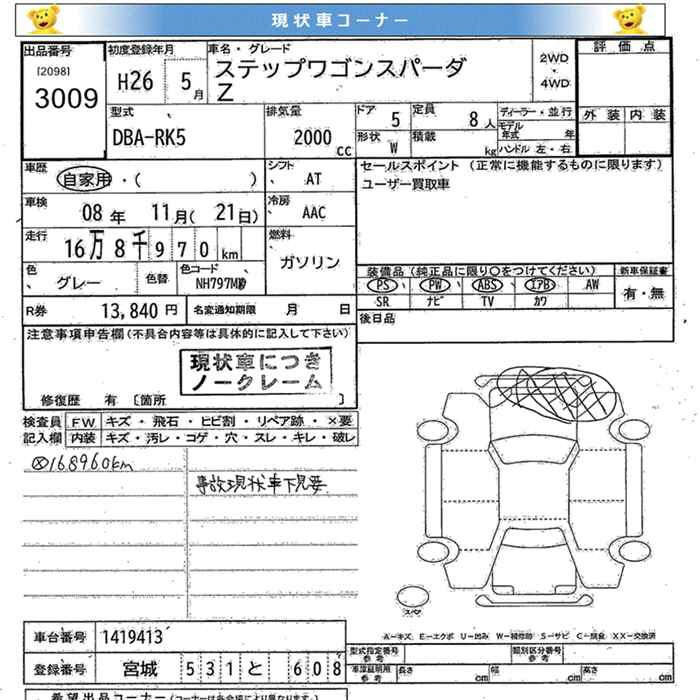 現状車コーナー
出品番号
[2098]
3009
初度登録年月
H26 5月
車名・グレード
ステップワゴンスパーダ
Z
2WD
・
4WD
評価点
外装 内装
型式
DBA-RK5
排気量
2000 cc
ドア 5
定員 8人
形状 W
積載 kg
ディーラー・並行
モデル年式 年
ハンドル 左・右
車歴
自家用・( )
シフト
AT
車検
08年 11月(21日)
冷房
AAC
走行
16万8千970km
燃料
ガソリン
色
グレー
色替
色コード
セールスポイント (正常に機能するものに限ります)
ユーザー買取車
装備品(純正品に限り○をつけてください)
新車保証書
PS PW ABS エアB AW
有・無
SR ナビ TV カワ
R券 13,840円
名変通知期限 月 日
後日品
注意事項申告欄(不具合内容等は具体的に記入して下さい)
現状車につき
ノークレーム
修復歴 有〔箇所 〕
検査員
記入欄
FW キズ・飛石・ヒビ割・リペア跡・×要
内装 キズ・汚レ・コゲ・穴・スレ・キレ・破レ
168960km
事故現状車下見要
スペア
A-キズ E-エクボ U-凹み W-補修跡 S-サビ C-腐食 XX-交換済
車台番号 1419413
登録番号 宮城 531 と 608
型式指定番号
参考
類別区分番号
参考
車庫証明用
参考
長さ cm 幅 cm 高さ cm
希望出品コーナー